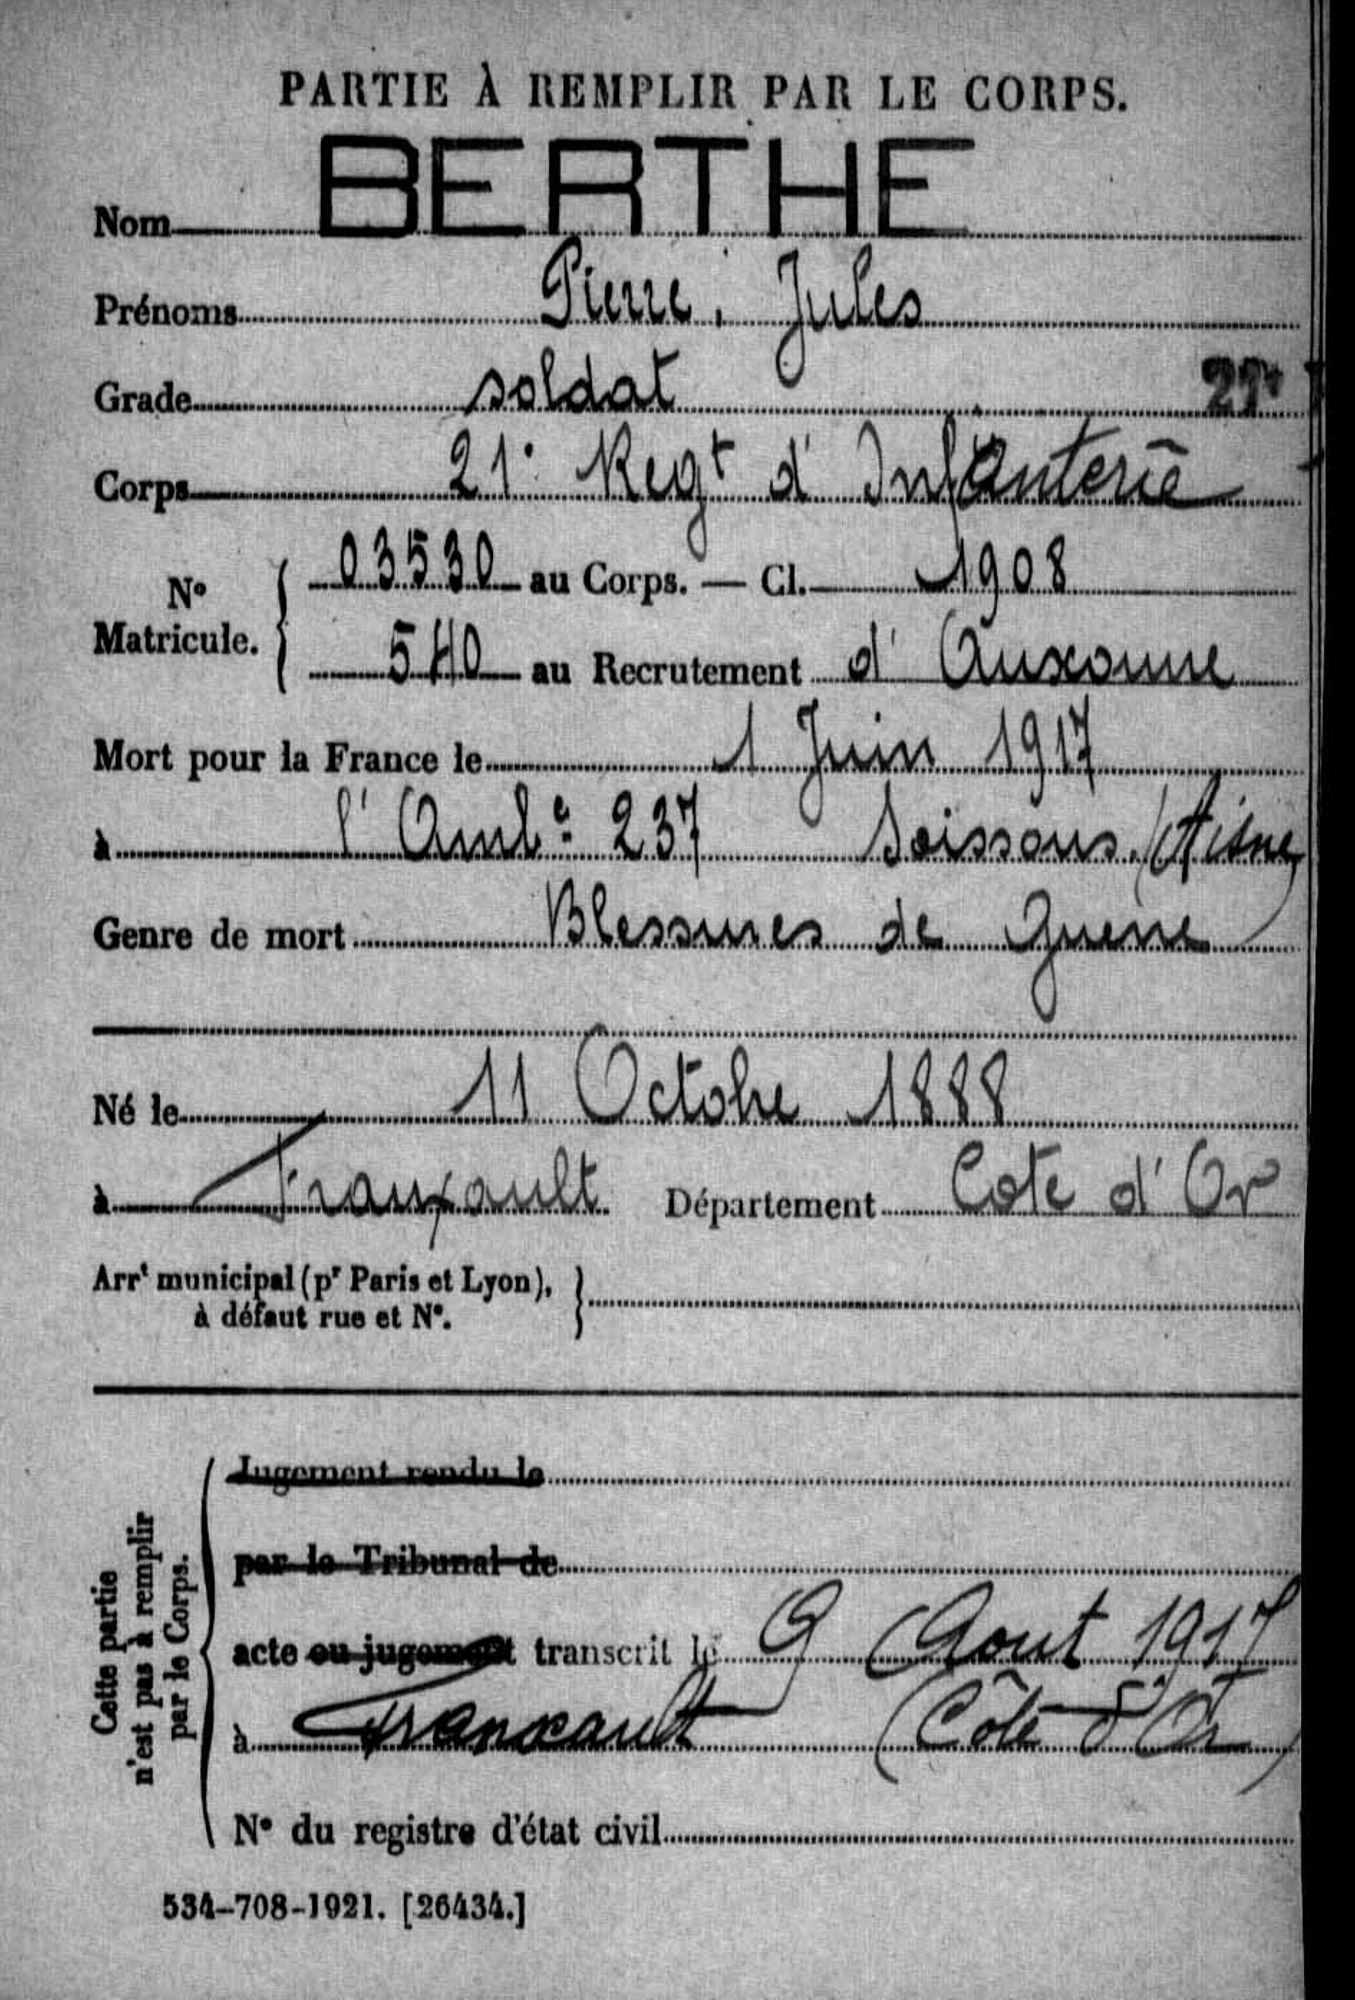 PARTIE À REMPLIR PAR LE CORPS.
Nom BERTHE
Prénoms Pierre, Jules
Grade soldat
21e
Corps 21e Regt d'Infanterie
No Matricule. 03530 au Corps. — Cl. 1908
540 au Recrutement d'Auxonne
Mort pour la France le 1 Juin 1917
à l'Amb ce 237 Soissons (Aisne)
Genre de mort Blessures de guerre
Né le 11 Octobre 1888
à Franxault Département Cote d'Or
Arrt municipal (pr Paris et Lyon),
à défaut rue et No.
Cette partie
n'est pas à remplir
par le Corps.
Jugement rendu le
par le Tribunal de
acte ou jugement transcrit le 9 Aout 1917
à Franxault (Côte d'Or)
No du registre d'état civil
534-708-1921. [26434.]